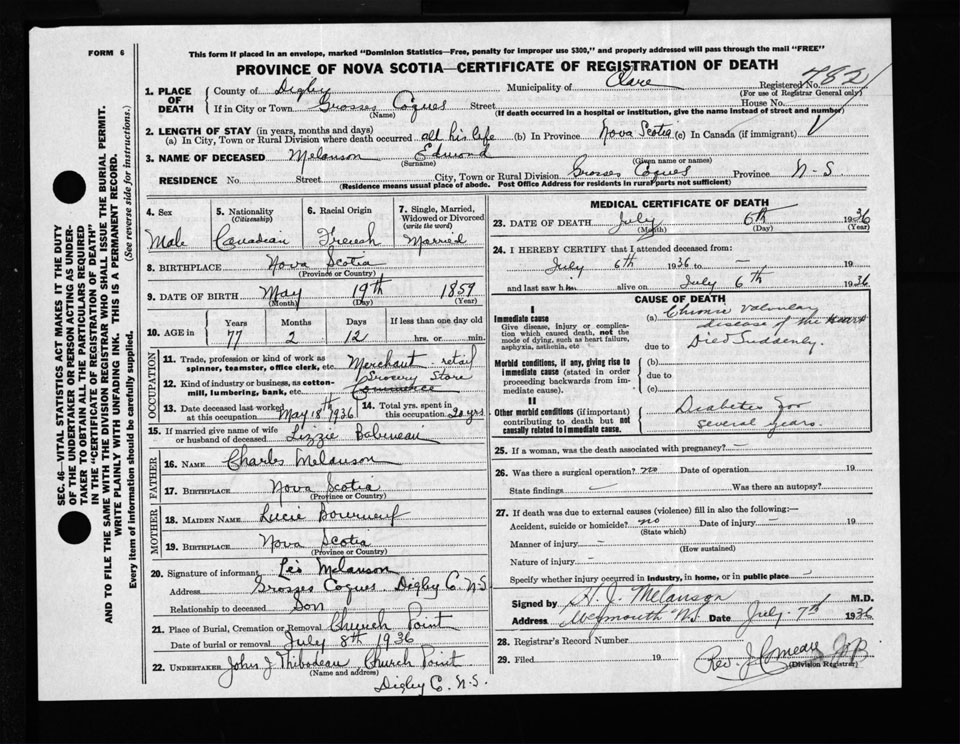 FORM 6
This form if placed in an envelope, marked "Dominion Statistics—Free, penalty for improper use $300," and properly addressed will pass through the mail "FREE"
PROVINCE OF NOVA SCOTIA—CERTIFICATE OF REGISTRATION OF DEATH
SEC. 46—VITAL STATISTICS ACT MAKES IT THE DUTY
OF THE UNDERTAKER OR PERSON ACTING AS UNDER-
TAKER TO OBTAIN ALL THE PARTICULARS REQUIRED
IN THE "CERTIFICATE OF REGISTRATION OF DEATH"
AND TO FILE THE SAME WITH THE DIVISION REGISTRAR WHO SHALL ISSUE THE BURIAL PERMIT.
WRITE PLAINLY WITH UNFADING INK. THIS IS A PERMANENT RECORD.
Every item of information should be carefully supplied. (See reverse side for instructions.)
1. PLACE OF DEATH County of Digby Municipality of Clare Registered No. 782
(For use of Registrar General only)
If in City or Town Grosses Coques Street House No.
(Name) (If death occurred in a hospital or institution, give the name instead of street and number)
2. LENGTH OF STAY (in years, months and days)
(a) In City, Town or Rural Division where death occurred all his life (b) In Province Nova Scotia (c) In Canada (if immigrant)
3. NAME OF DECEASED Melanson Edmond
(Surname) (Given name or names)
RESIDENCE No. Street City, Town or Rural Division Grosses Coques Province N-S.
(Residence means usual place of abode. Post Office Address for residents in rural parts not sufficient)
4. Sex 5. Nationality 6. Racial Origin 7. Single, Married,
(Citizenship) Widowed or Divorced
(write the word)
Male Canadian French Married
8. BIRTHPLACE Nova Scotia
(Province or Country)
9. DATE OF BIRTH May 19th 1859
(Month) (Day) (Year)
10. AGE in Years Months Days If less than one day old
77 2 12 hrs. or min.
OCCUPATION
11. Trade, profession or kind of work as
spinner, teamster, office clerk, etc. Merchant - retail
12. Kind of industry or business, as cotton- Grocery Store
mill, lumbering, bank, etc. Commerce
13. Date deceased last worked
at this occupation May 18th 1936 14. Total yrs. spent in
this occupation 20 yrs.
15. If married give name of wife
or husband of deceased Lizzie Babineau
FATHER
16. NAME Charles Melanson
17. BIRTHPLACE Nova Scotia
(Province or Country)
MOTHER
18. MAIDEN NAME Lucie Bourneuf
19. BIRTHPLACE Nova Scotia
(Province or Country)
20. Signature of informant Léo Melanson
Address Grosses Coques Digby C. N.S
Relationship to deceased Son
21. Place of Burial, Cremation or Removal Church Point
Date of burial or removal July 8th 1936
22. UNDERTAKER John J Thibodeau, Church Point
(Name and address)
Digby C. N.S.
MEDICAL CERTIFICATE OF DEATH
23. DATE OF DEATH July 6th 1936
(Month) (Day) (Year)
24. I HEREBY CERTIFY that I attended deceased from:
July 6th 1936 to — 19
and last saw him alive on July 6th 1936
CAUSE OF DEATH
I
Immediate cause
Give disease, injury or complica-
tion which caused death, not the
mode of dying, such as heart failure,
asphyxia, asthenia, etc
(a) Chronic Valvular
disease of the
due to Died Suddenly.
Morbid conditions, if any, giving rise to
immediate cause (stated in order
proceeding backwards from im-
mediate cause).
(b)
due to
(c)
II
Other morbid conditions (if important)
contributing to death but not
causally related to immediate cause.
Diabetes for
several years.
25. If a woman, was the death associated with pregnancy? —
26. Was there a surgical operation? no Date of operation 19
State findings — Was there an autopsy?
27. If death was due to external causes (violence) fill in also the following:—
Accident, suicide or homicide? no Date of injury — 19
(State which)
Manner of injury —
(How sustained)
Nature of injury —
Specify whether injury occurred in industry, in home, or in public place
Signed by H. J. Melanson M.D.
Address Weymouth N.S. Date July 7th 1936
28. Registrar's Record Number
29. Filed 19 Rev. J. Comeau
(Division Registrar)